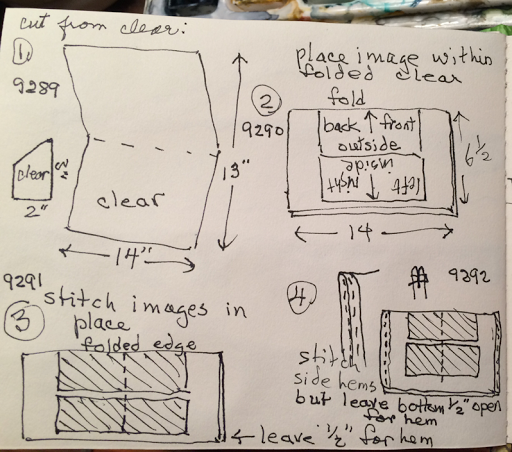 cut from clear:
1.
9289
clear
3"
2"
clear
13"
14"
place image within
folded clear
2
fold
9290
back ↑ front
outside
inside
left ↑ right
6 1/2
14
9291
3
stitch images in
place
folded edge
← leave 1/2" for hem
4.
9292
stitch
side hems
but leave bottom 1/2" open
for hem